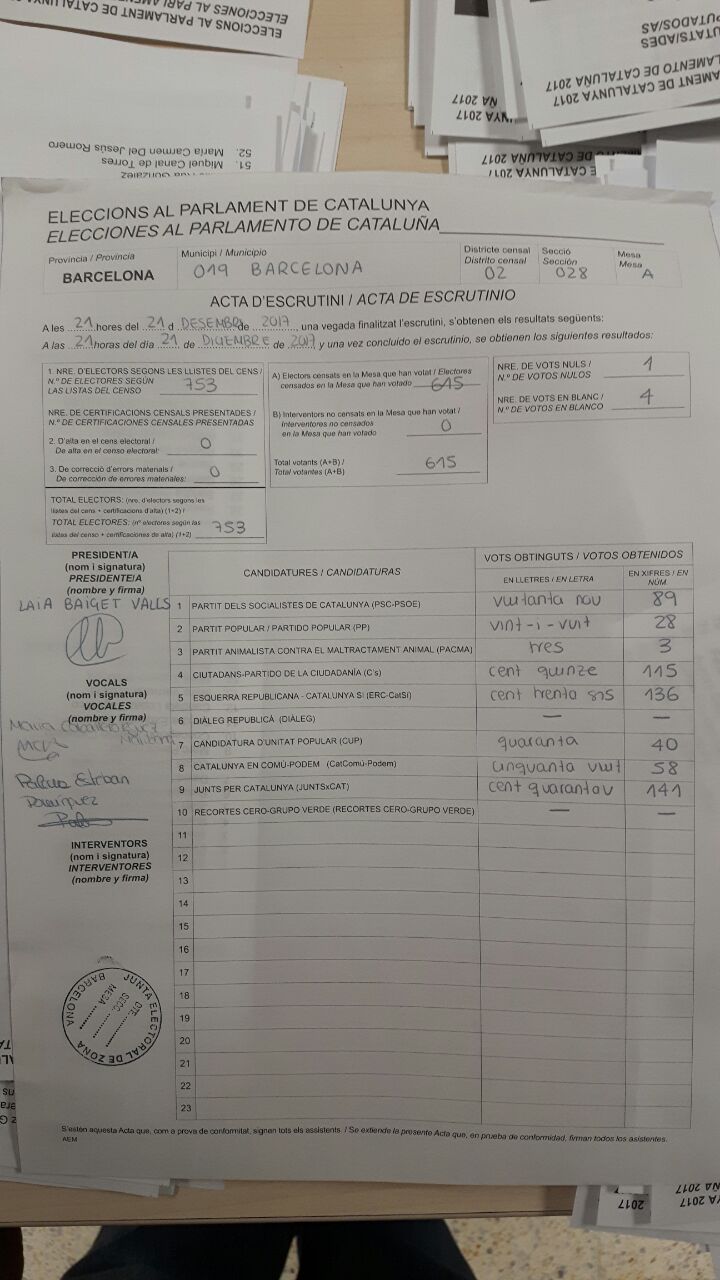 ELECCIONS AL PARLAMENT DE CATALUNYA
ELECCIONES AL PARLAMENTO DE CATALUÑA
DIPUTATS/ADES
51. Miquel Canal de Torres
52. María Carmen Del Jesús Romero
ELECCIONS AL PARLAMENT DE CATALUNYA
ELECCIONES AL PARLAMENTO DE CATALUÑA
Província / Provincia
BARCELONA
Municipi / Municipio
019 BARCELONA
Districte censal
Distrito censal
02
Secció
Sección
028
Mesa
Mesa
A
ACTA D'ESCRUTINI / ACTA DE ESCRUTINIO
A les 21 hores del 21 d DESEMBRE de 2017, una vegada finalitzat l'escrutini, s'obtenen els resultats següents:
A las 21 horas del día 21 de DICIEMBRE de 2017 y una vez concluido el escrutinio, se obtienen los siguientes resultados:
1. NRE. D'ELECTORS SEGONS LES LLISTES DEL CENS /
N.º DE ELECTORES SEGÚN
LAS LISTAS DEL CENSO 753
NRE. DE CERTIFICACIONS CENSALS PRESENTADES /
N.º DE CERTIFICACIONES CENSALES PRESENTADAS
2. D'alta en el cens electoral /
De alta en el censo electoral: 0
3. De correcció d'errors materials /
De corrección de errores materiales: 0
TOTAL ELECTORS: (nre. d'electors segons les
llistes del cens + certificacions d'alta) (1+2) /
TOTAL ELECTORES: (nº electores según las
listas del censo + certificaciones de alta) (1+2) 753
A) Electors censats en la Mesa que han votat / Electores
censados en la Mesa que han votado 615
B) Interventors no censats en la Mesa que han votat /
Interventores no censados
en la Mesa que han votado 0
Total votants (A+B) /
Total votantes (A+B) 615
NRE. DE VOTS NULS /
N.º DE VOTOS NULOS 1
NRE. DE VOTS EN BLANC /
N.º DE VOTOS EN BLANCO 4
PRESIDENT/A
(nom i signatura)
PRESIDENTE/A
(nombre y firma)
LAIA BAIGET VALLS
VOCALS
(nom i signatura)
VOCALES
(nombre y firma)
Esteban
INTERVENTORS
(nom i signatura)
INTERVENTORES
(nombre y firma)
CANDIDATURES / CANDIDATURAS
VOTS OBTINGUTS / VOTOS OBTENIDOS
EN LLETRES / EN LETRA
EN XIFRES / EN NÚM.
1 PARTIT DELS SOCIALISTES DE CATALUNYA (PSC-PSOE) vuitanta nou 89
2 PARTIT POPULAR / PARTIDO POPULAR (PP) vint-i-vuit 28
3 PARTIT ANIMALISTA CONTRA EL MALTRACTAMENT ANIMAL (PACMA) tres 3
4 CIUTADANS-PARTIDO DE LA CIUDADANÍA (C's) cent quinze 115
5 ESQUERRA REPUBLICANA - CATALUNYA SÍ (ERC-CatSí) cent trenta sis 136
6 DIÀLEG REPUBLICÀ (DIÀLEG) — —
7 CANDIDATURA D'UNITAT POPULAR (CUP) quaranta 40
8 CATALUNYA EN COMÚ-PODEM (CatComú-Podem) cinquanta vuit 58
9 JUNTS PER CATALUNYA (JUNTSxCAT) cent quaranta u 141
10 RECORTES CERO-GRUPO VERDE (RECORTES CERO-GRUPO VERDE) — —
11
12
13
14
15
16
17
18
19
20
21
22
23
JUNTA ELECTORAL DE ZONA
BARCELONA
DTE.
SECC.
MESA
S'estén aquesta Acta que, com a prova de conformitat, signen tots els assistents. / Se extiende la presente Acta que, en prueba de conformidad, firman todos los asistentes.
AEM